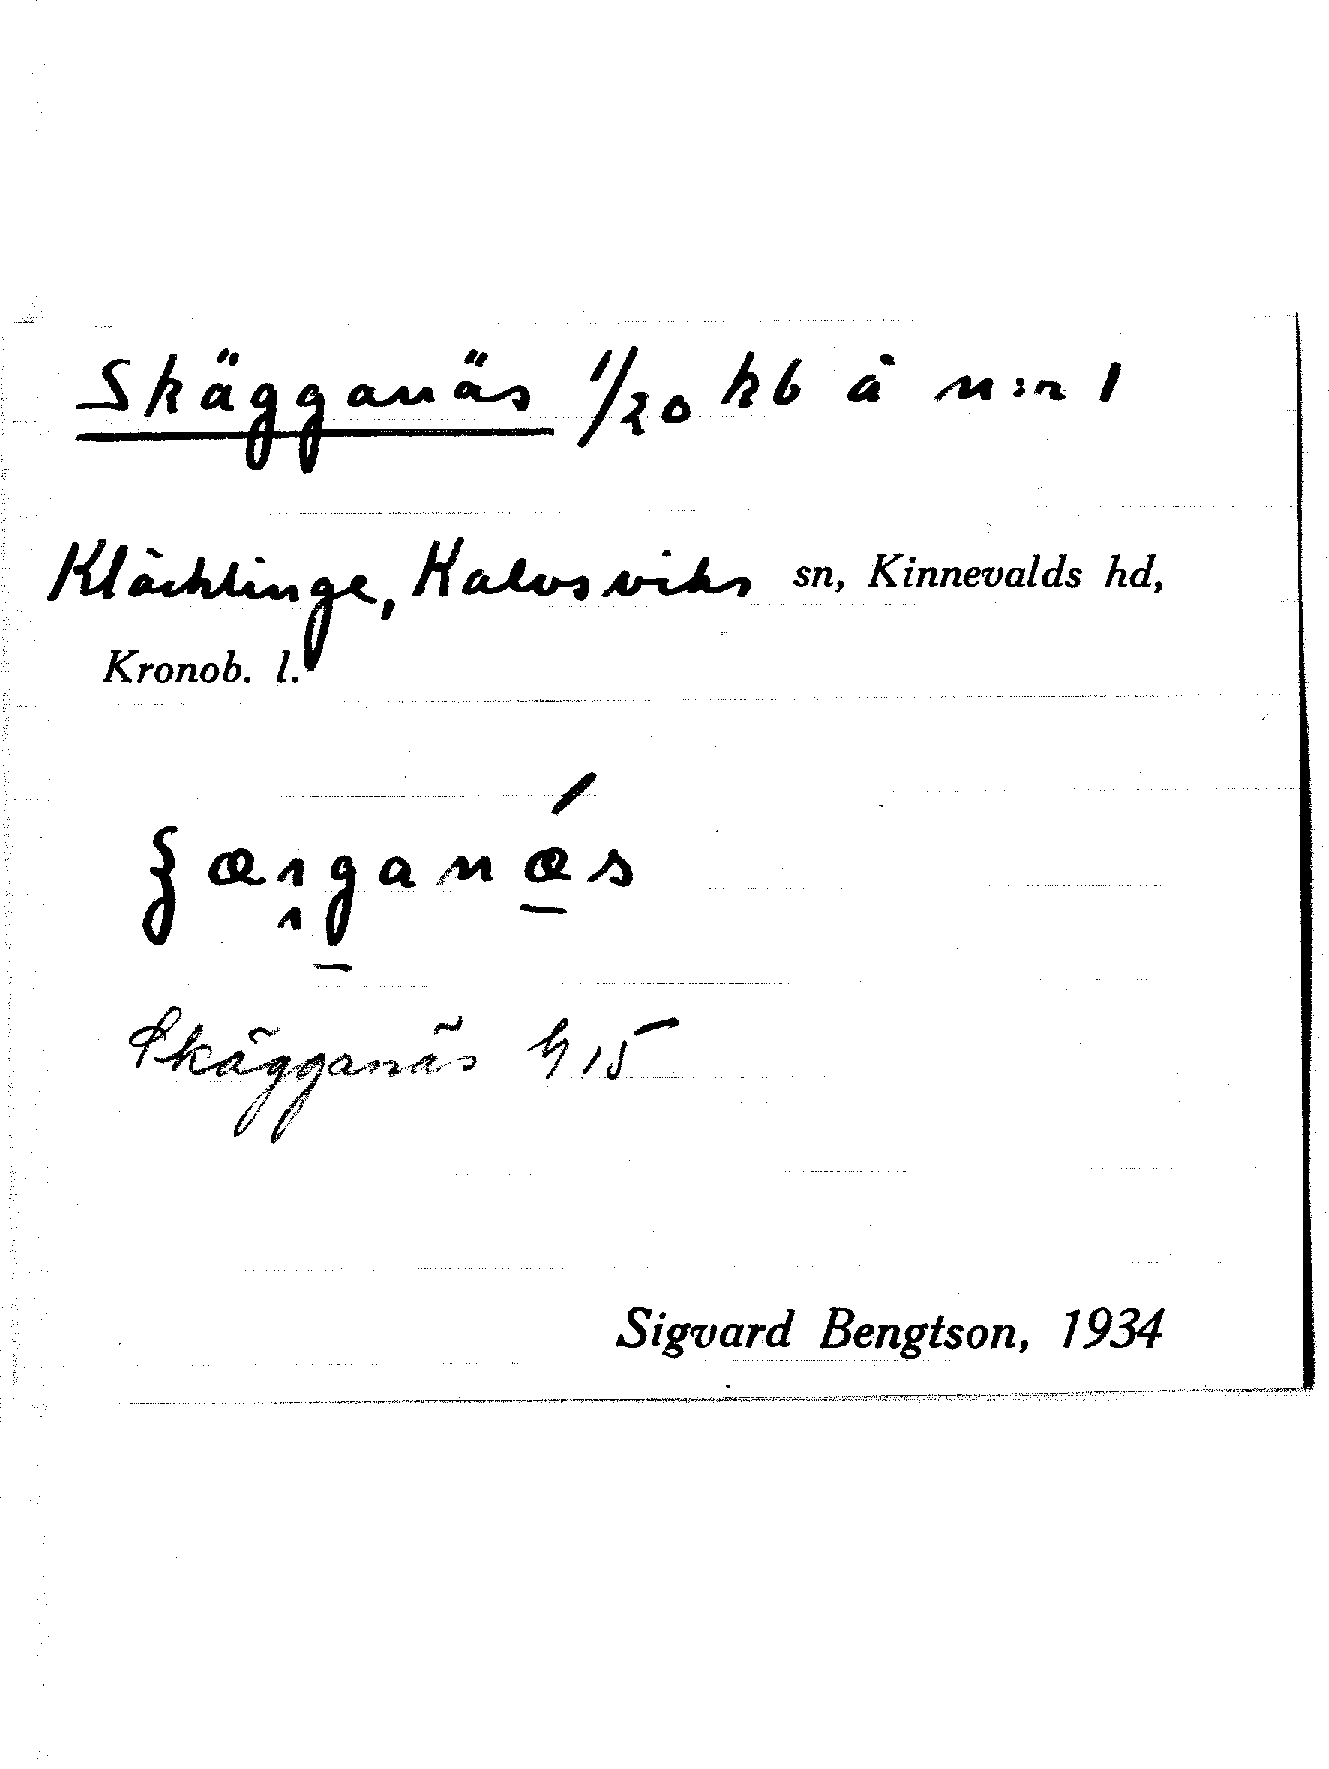 Skägganäs 1/20 kb å n:r 1
Kläcklinge, Kalvsviks sn, Kinnevalds hd,
Kronob. l.
Skägganäs G 15
Sigvard Bengtson, 1934